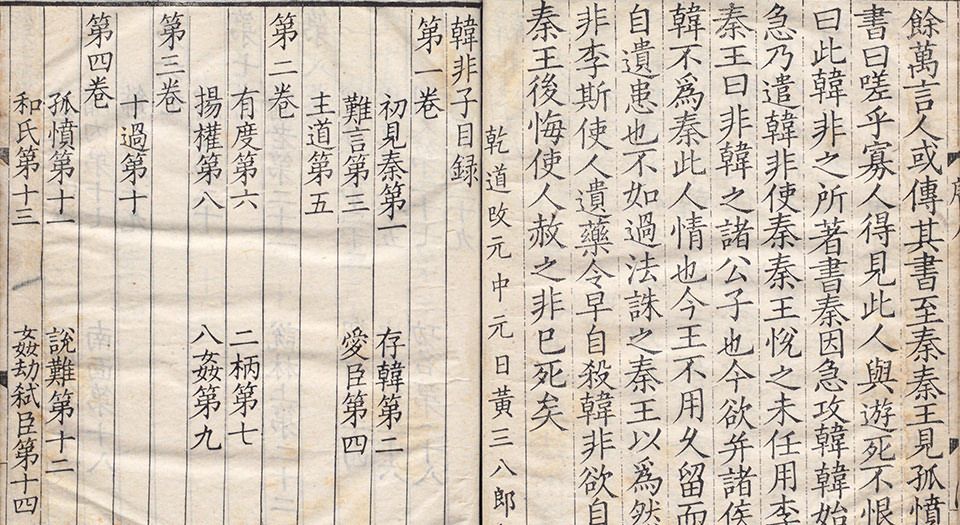 餘萬言人或傳其書至秦秦王見孤憤
書曰嗟乎寡人得見此人與遊死不恨
曰此韓非之所著書秦因急攻韓韓始
急乃遣韓非使秦秦王悅之未任用李
秦王曰非韓之諸公子也今欲并諸侯
韓不爲秦此人情也今王不用久留而
自遺患也不如過法誅之秦王以爲然
非李斯使人遺藥令早自殺韓非欲自
秦王後悔使人赦之非已死矣
乾道改元中元日黃三八郎
韓非子目録
第一卷
初見秦第一 存韓第二
難言第三 愛臣第四
主道第五
第二卷
有度第六 二柄第七
揚權第八 八姦第九
第三卷
十過第十
第四卷
孤憤第十一 說難第十二
和氏第十三 姦劫弒臣第十四